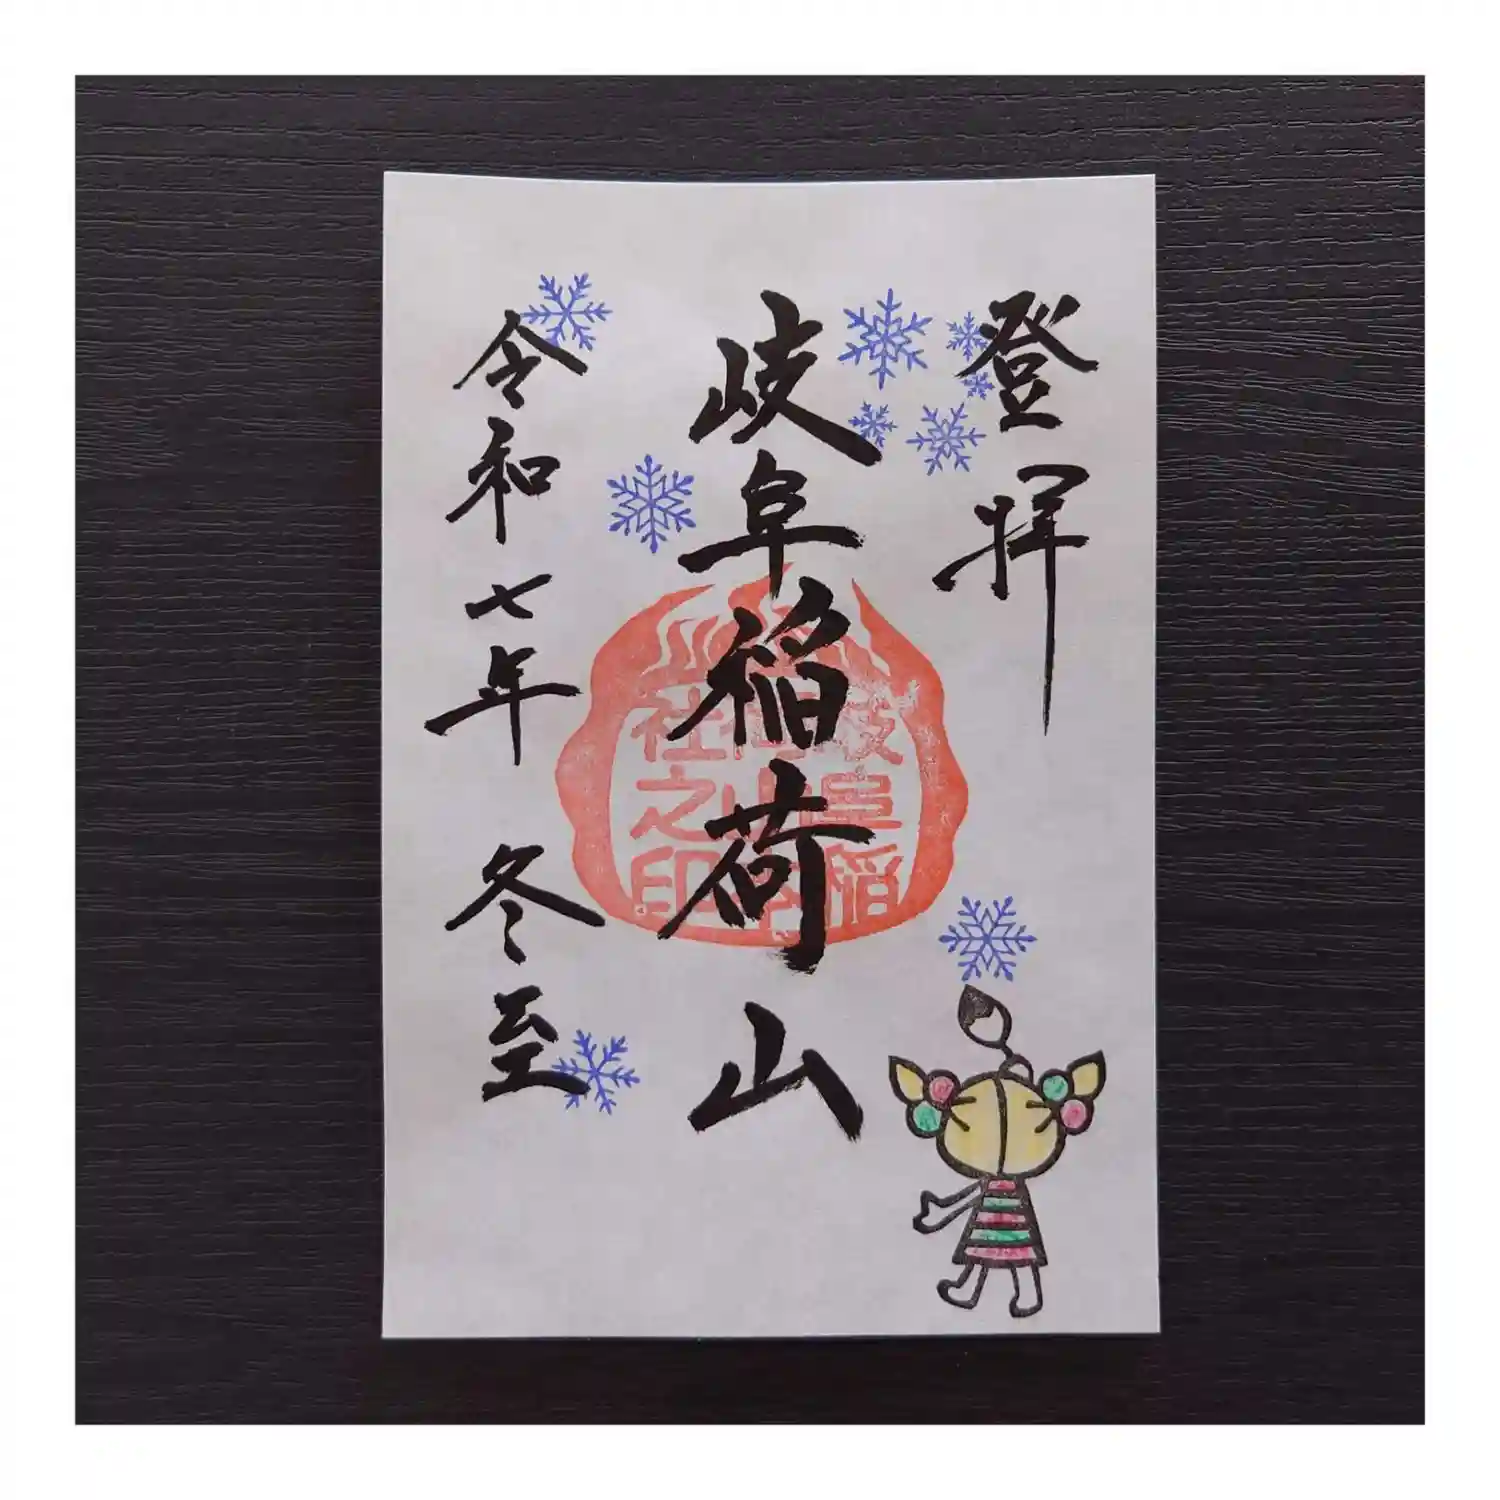 登拝
岐阜稲荷山
令和七年 冬至
岐阜稲
荷山本
社之印